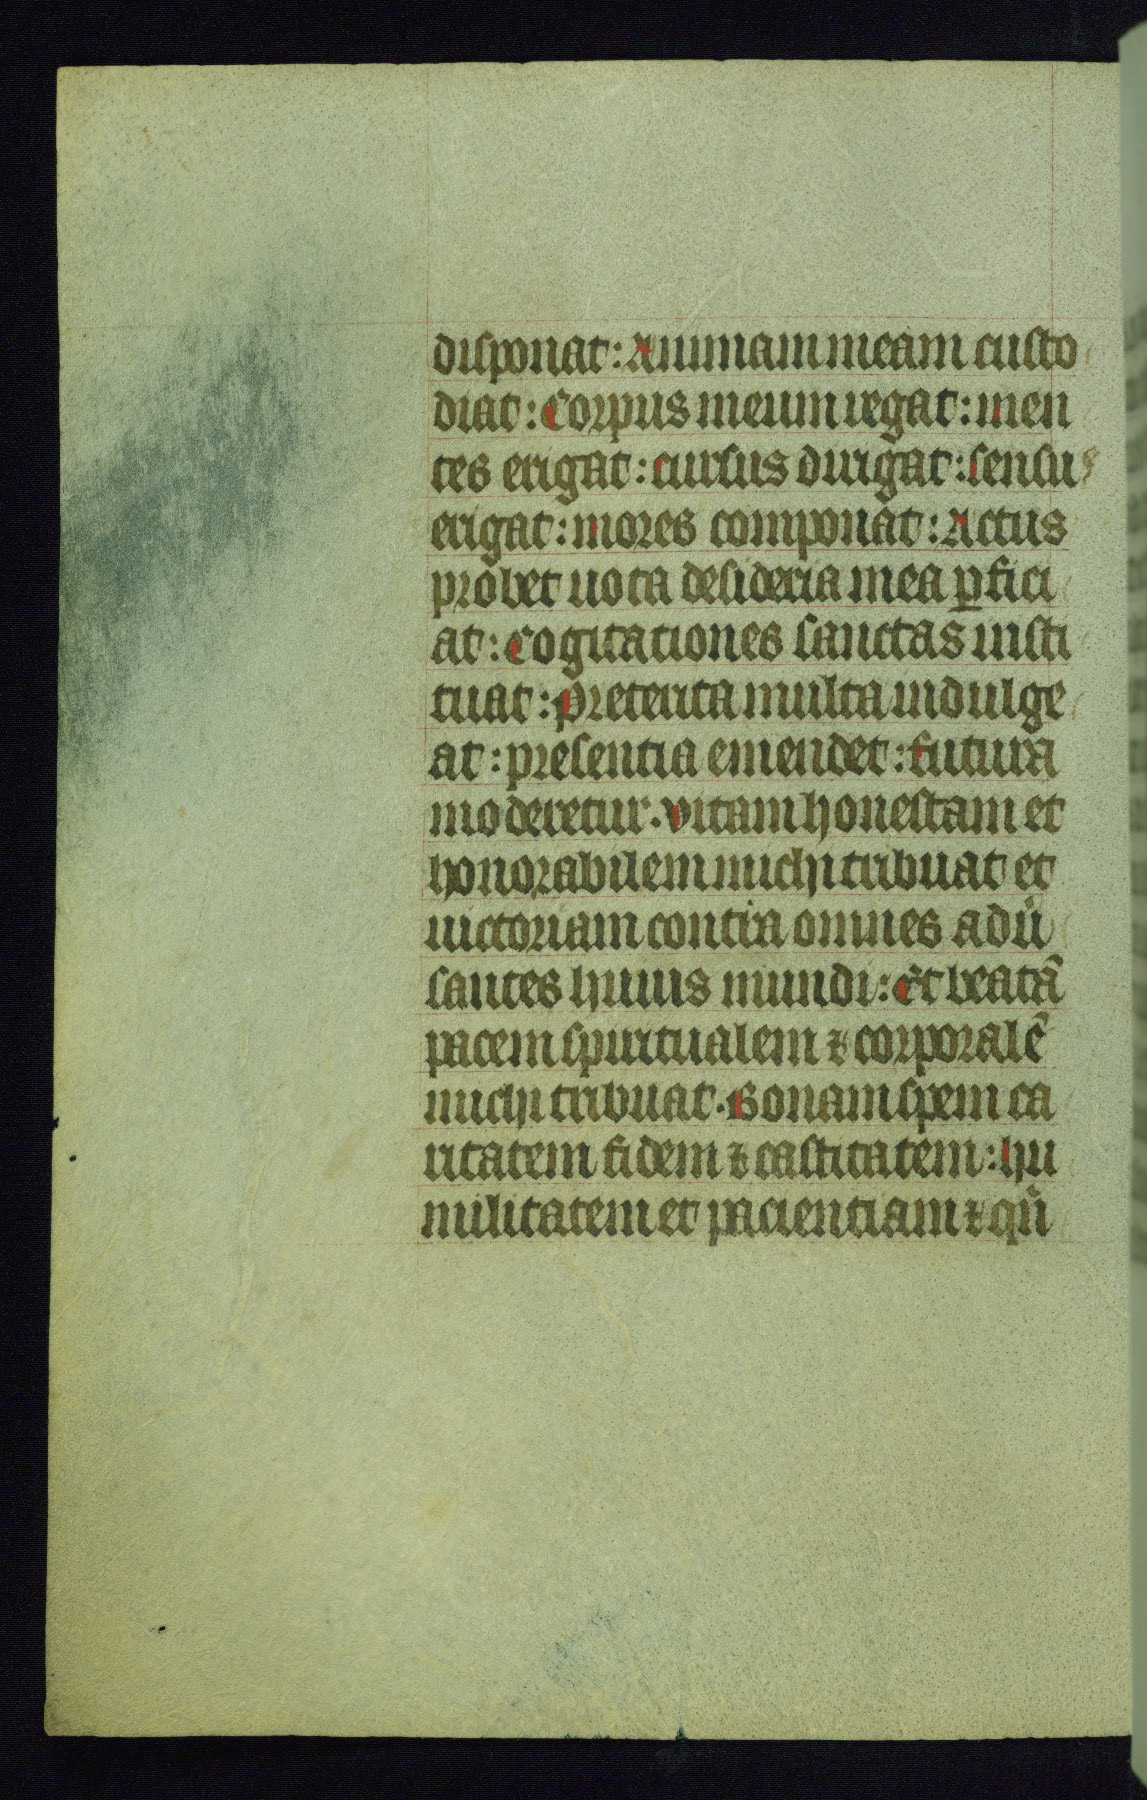 disponat: Animam meam custo
diat: Corpus meum regat: men
tes erigat: cursus dirigat: sensus
erigat: mores componat: Actus
probet uota desideria mea ꝑfici
at: Cogitationes sanctas insti
tuat: Preterita multa indulge
at: presentia emendet: futura
moderetur. Vitam honestam et
honorabilem michi tribuat et
uictoriam contra omnes adũ
santes huius mundi: Et beatã
pacem spiritualem ⁊ corporalẽ
michi tribuat. Bonam spem ca
ritatem fidem ⁊ castitatem: hu
militatem et pacientiam ⁊ qñ